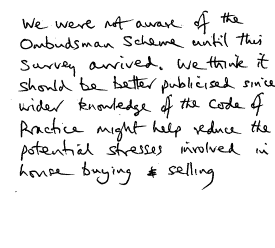 We were not aware of the
Ombudsman Scheme until this
Survey arrived. We think it
should be better publicised since
wider knowledge of the Code of
Practice might help reduce the
potential stresses involved in
house buying & selling